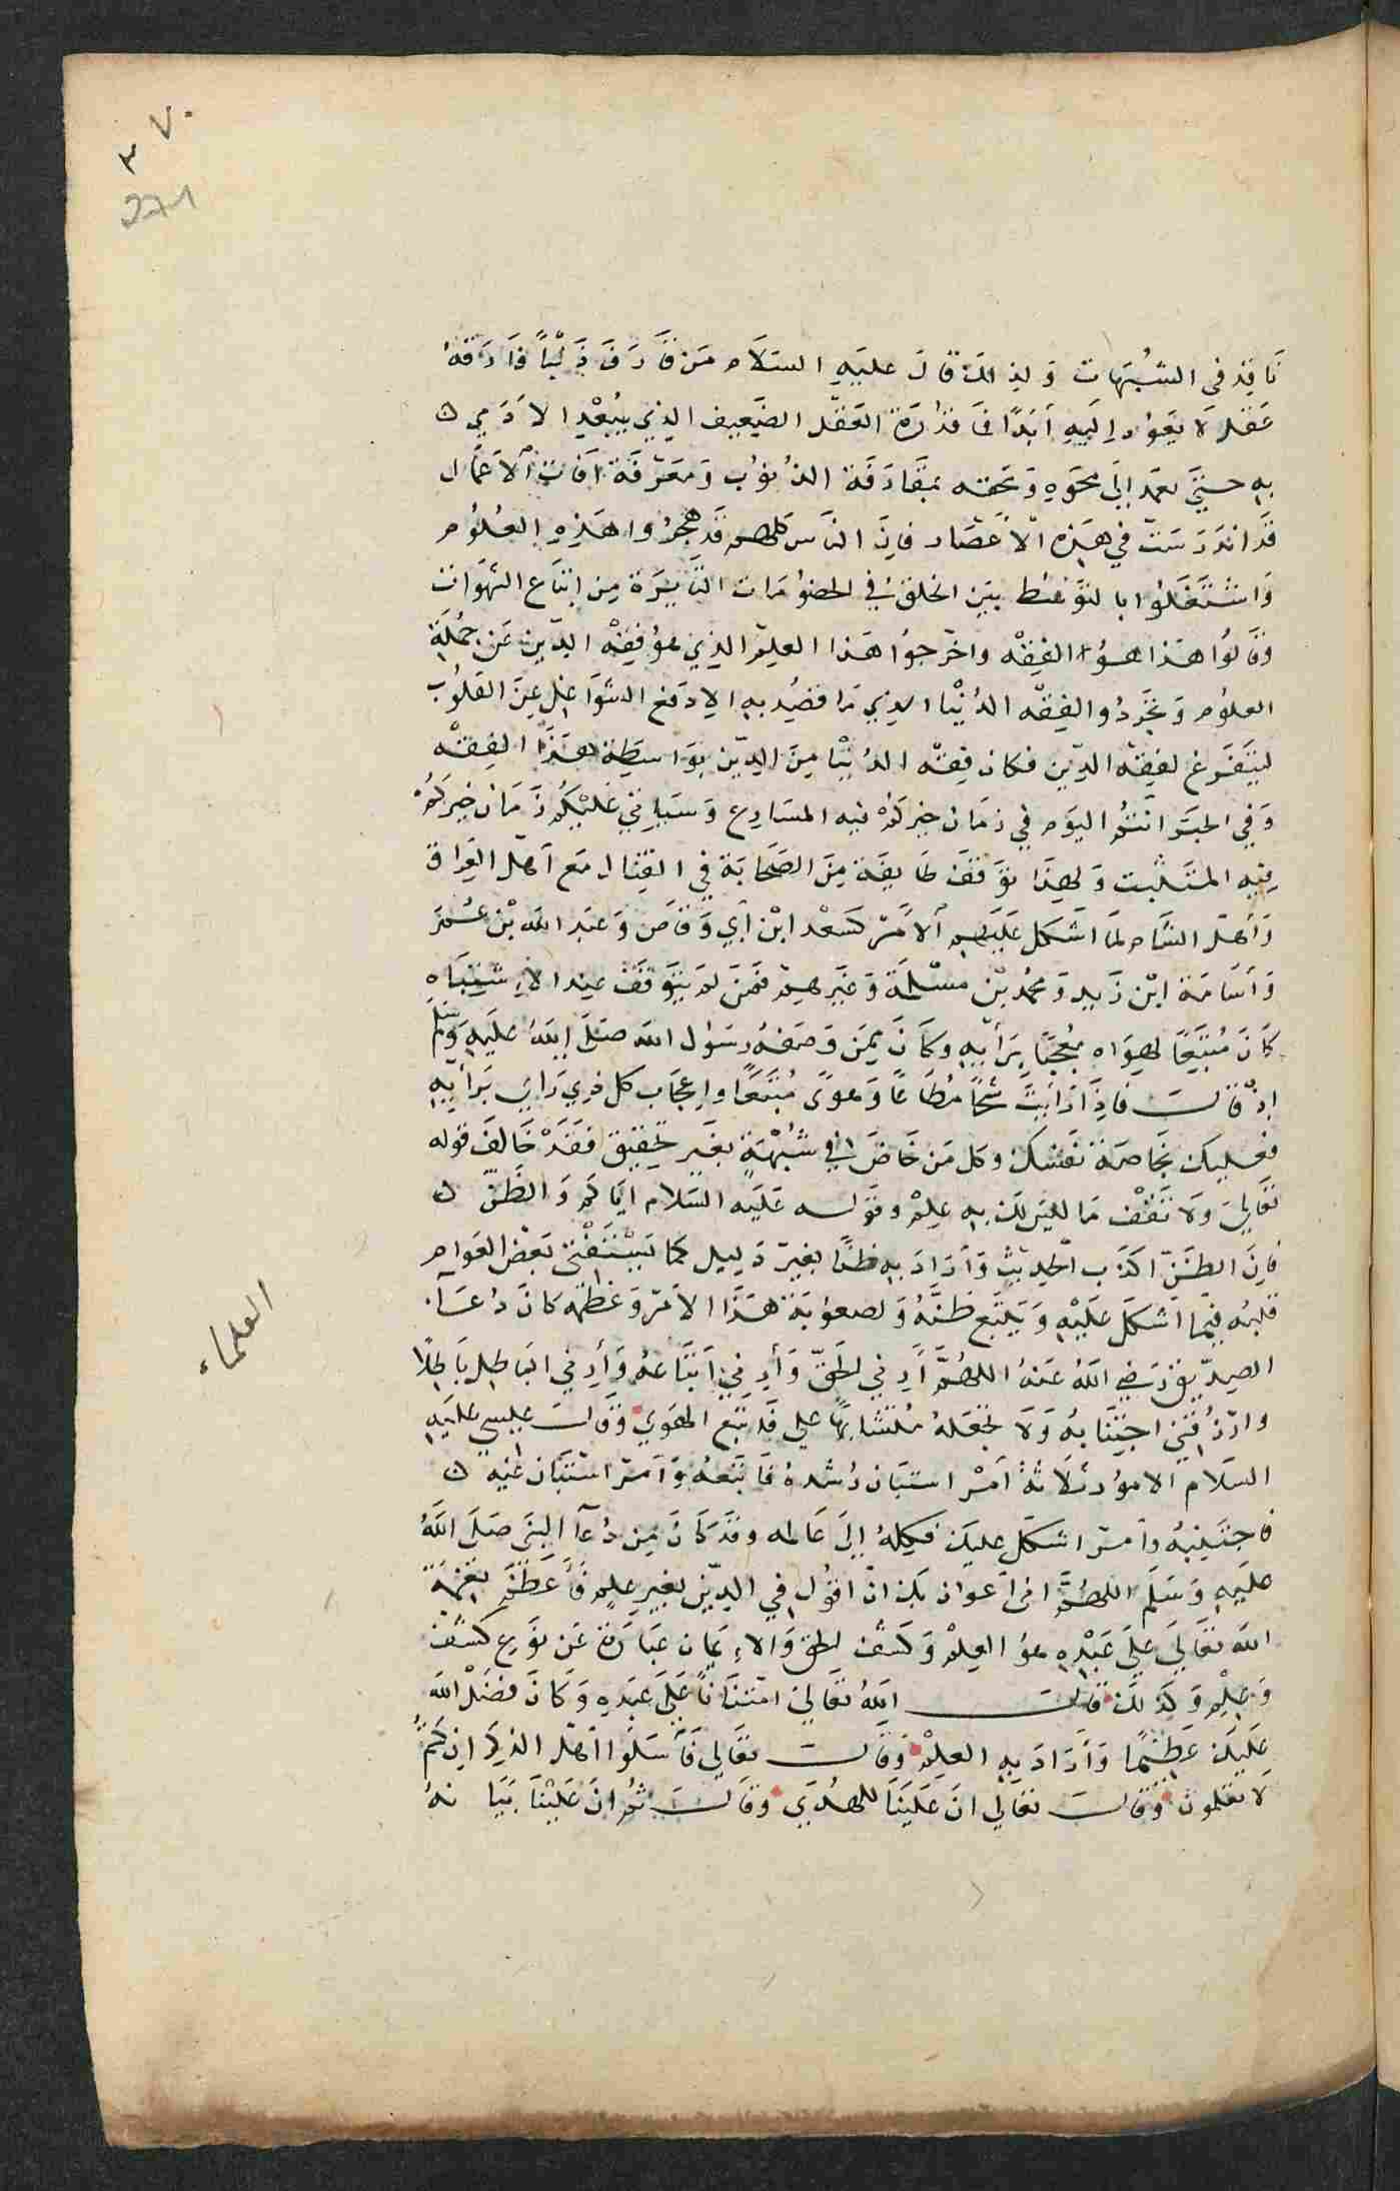 ٣٧٠
271
نَاقِد في الشُبَهات وَلذلكَ قالَ عليَهِ السَلاَم مَن قَارَفَ ذَنْباً فَارَقهُ
عَقل لاَ يَعوُد اِلَيهِ اَبَداً فَما قدرة العَقل الضَعِيف الذي يُبعْد الادَمي ں
به حتيَّ يعمد اِلَى محوَهِ وَمحقه بمقَارَفَة الذنوُب وَمعَرْفَة اَفات الاَعمَال
قَد اندَرسَتْ في هَذِه الاَعصَار فاِنَ الناَس كلهم قد هجروا هَذِهِ العُلوُم
وَاشتَغَلوُا بالتوَسُط بيَن الخلق في الخصوُمَات الثَايِرَة مِن اتبَاع الشهوَات
وَقالوُا هَذا هوُ الفِقه واخرَجوُا هَذا العِلم الذِي هوُ فِقْه الدّين عَن جُملَة
العلوُم وَتجَردُوا لفِقه الدُنيْا الذي مَا قصُد به الا دَفع الشوَاغِل عنَ القلوُب
ليتَفَرغ لفِقه الدّين فكان فِقه الدُنيْا مِنَ الدِيّن بوَاسِطةِ هَذَا الفِقه
وَفي الخبَر انتمُ اليوَم في زمَان خيركمُ فيه المسَارع وَسَياتي عَليْكمُ زَمَان خيركمُ
فِيهِ المتَثبت وَلهذَا توَقفَ طاَيفة مِنَ الصَحَابَة في القِتال مَع اَهل العِراق
وَأهل الشام لمَا اَشكل عَليَهِم الاَمْر كسَعْد ابْن اَبي وَقاص وَعَبد الله بْن عُمَر
وَاسَامَة ابْن زَيد وَمحمُد بْن مسْلمَة وَغيَرهِم فمَنَ لَم يتوَقفَ عِند الاِشتِبَاه
كاَنَ مُتبَعًا لهوَاه مُعجَبًا برَأيهِ وكاَنَ ممِن وَصَفهُ رسُول الله صَلىَ اللهُ عليَهِ وسَلم
اِذ قالـــ فاِذَا رَاَيتَ شُحًا مُطاعًا وَهوًى مُتبَعًا واعجَاب كل ذِي رَايٍ برَأيهِ
فعليكَ بخَاصَة نَفسك وكل مَن خَاضَ في شُبْهَةٍ بغَير تحقيق فقَدَ خَالفَ قوله
تعَاليَ وَلاَ تقفْ مَا ليسَ لكَ به عِلمْ وقوَله عَليَه السَلام اياكم وَالظَنّ ں
فاِنَ الظَنّ اكذَب الحديثِ وَاَرَادَ بِهِ ظنًا بغيرِ دَليل كما يَسْتَفْتي بَعض العَوام
قلبَه فيِمَا اَشكَلَ عَليْهِ وَيتبَع ظنَهُ وَلصعوُبَة هَذَا الاَمْر وَعظمه كانَ دُعَـآ
الصِدّيق رَضي اللهُ عَنهُ اللهُمَّ اَرِني الحقّ وَأرِني اَتبَاعهُ وَأرِني البَاطِل باَطلاً
وارْزُقني اجتِنابهُ وَلاَ تجعَلهُ مُتشَابهًا علي فَاتبَع الهوَي وَقالـــ عِيسي عليَهِ
السَلام الاموُر ثلاَثة اَمْر استبَان رُشدهُ فَاتبَعهُ وَاَمْر استَبَان غيَه ں
فاجتَنِبهُ واَمْر اشكَل عليكَ فكِلهُ اِليَ عَالمه وقَد كَانَ مِن دُعَآ النبيَ صَلىَ اللهُ
عليَهِ وَسَلم اللهُمَّ اني اَعوُذ بكَ انْ اقوُل في الدِّين بغير عِلمٍ فاَعَظم نعْمَة
الله تعَاليَ عَليَ عَبْدِهِ هوُ العِلمْ وَكشَف الحق وَالاِيمان عِبَارَة عَن نوَع كشَف
وَعِلم وَلذَلكَ قَالــــــ اللهُ تعَاليَ امتنَانًا عَلىَ عَبدِهِ وَكانَ فضَل الله
عليَكَ عَظيمًا وَاَرَادَ بِهِ العِلمْ وَقَالـــ تعَالي فَاسَلوُا اَهل الذِكر اِن كنتم
لاتعَلموُن وَقالـــ تعَالي انَ عَليَنَا للهُدَي وَقَالـــ ثمُ انَ عَليْنَا بَيَانهُ
العلماء